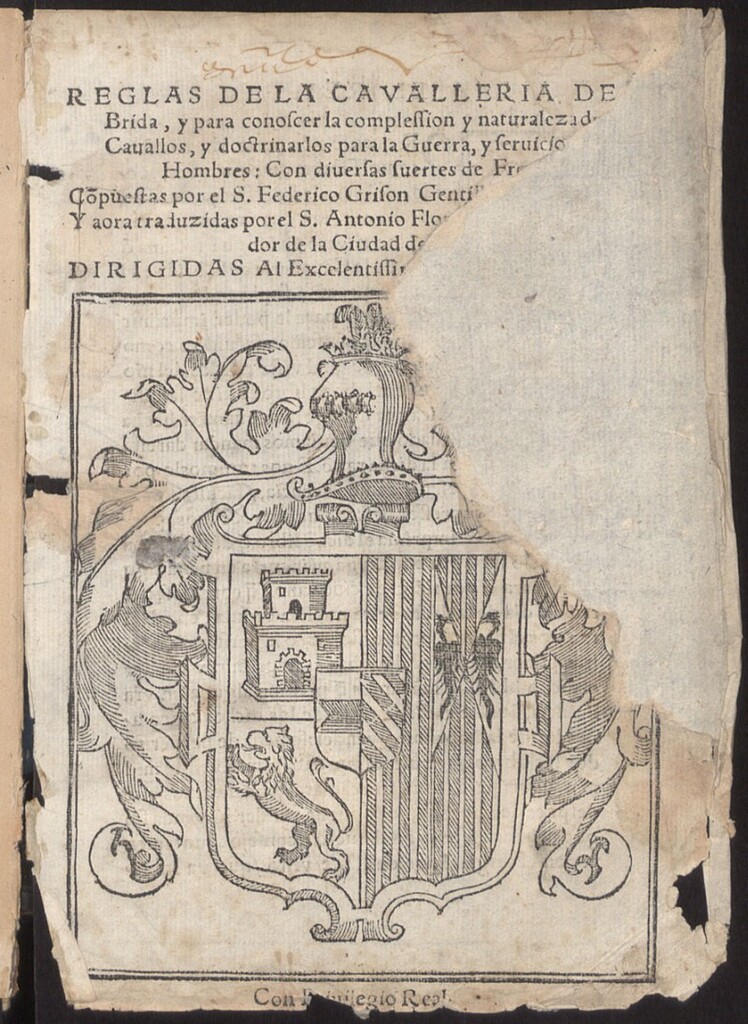 REGLAS DE LA CAVALLERIA DE
Brida, y para conoſcer la compleſsion y naturaleza
Cauallos, y doctrinarlos para la Guerra, y ſeruicio
Hombres: Con diuerſas ſuertes de
Cõpueſtas por el S. Federico Griſon
Y aora traduzidas por el S. Antonio
dor de la Ciudad
DIRIGIDAS Al
Con Priuilegio Real.